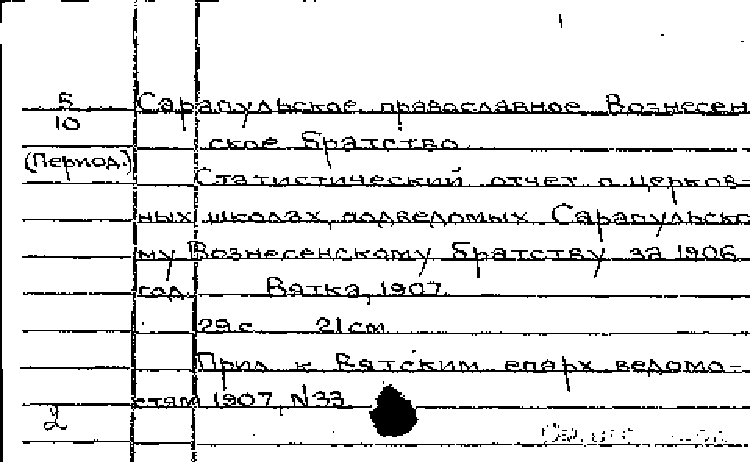 5
10
(Период.)
Сарапульское православное Вознесен
ское братство
Статистический отчет о церков-
ных школах, подведомых Сарапульско
му Вознесенскому братству за 1906
год. Вятка, 1907.
29 с 21 см
Прил к Вятским епарх ведомо-
стям 1907, N33
2